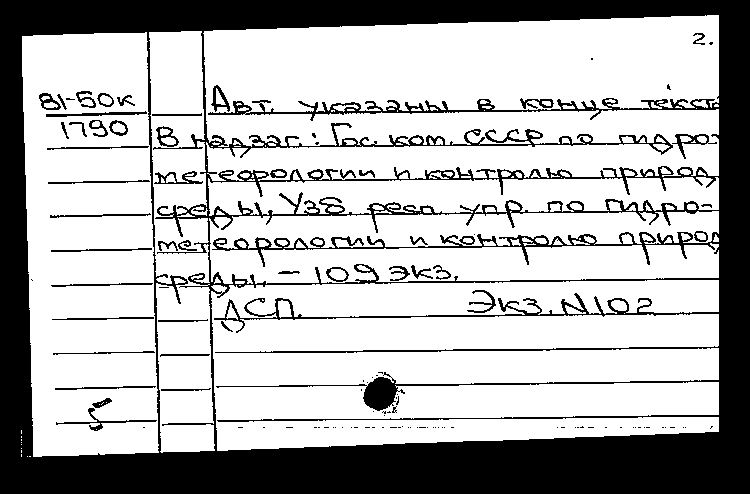 2.
81-50к
1790
Авт. указаны в конце текста
В надзаг.: Гос. ком. СССР по гидро-
метеорологии и контролю природ.
среды, Узб. респ. упр. по гидро-
метеорологии и контролю природ.
среды. – 109 экз.
ДСП. Экз. N102
5